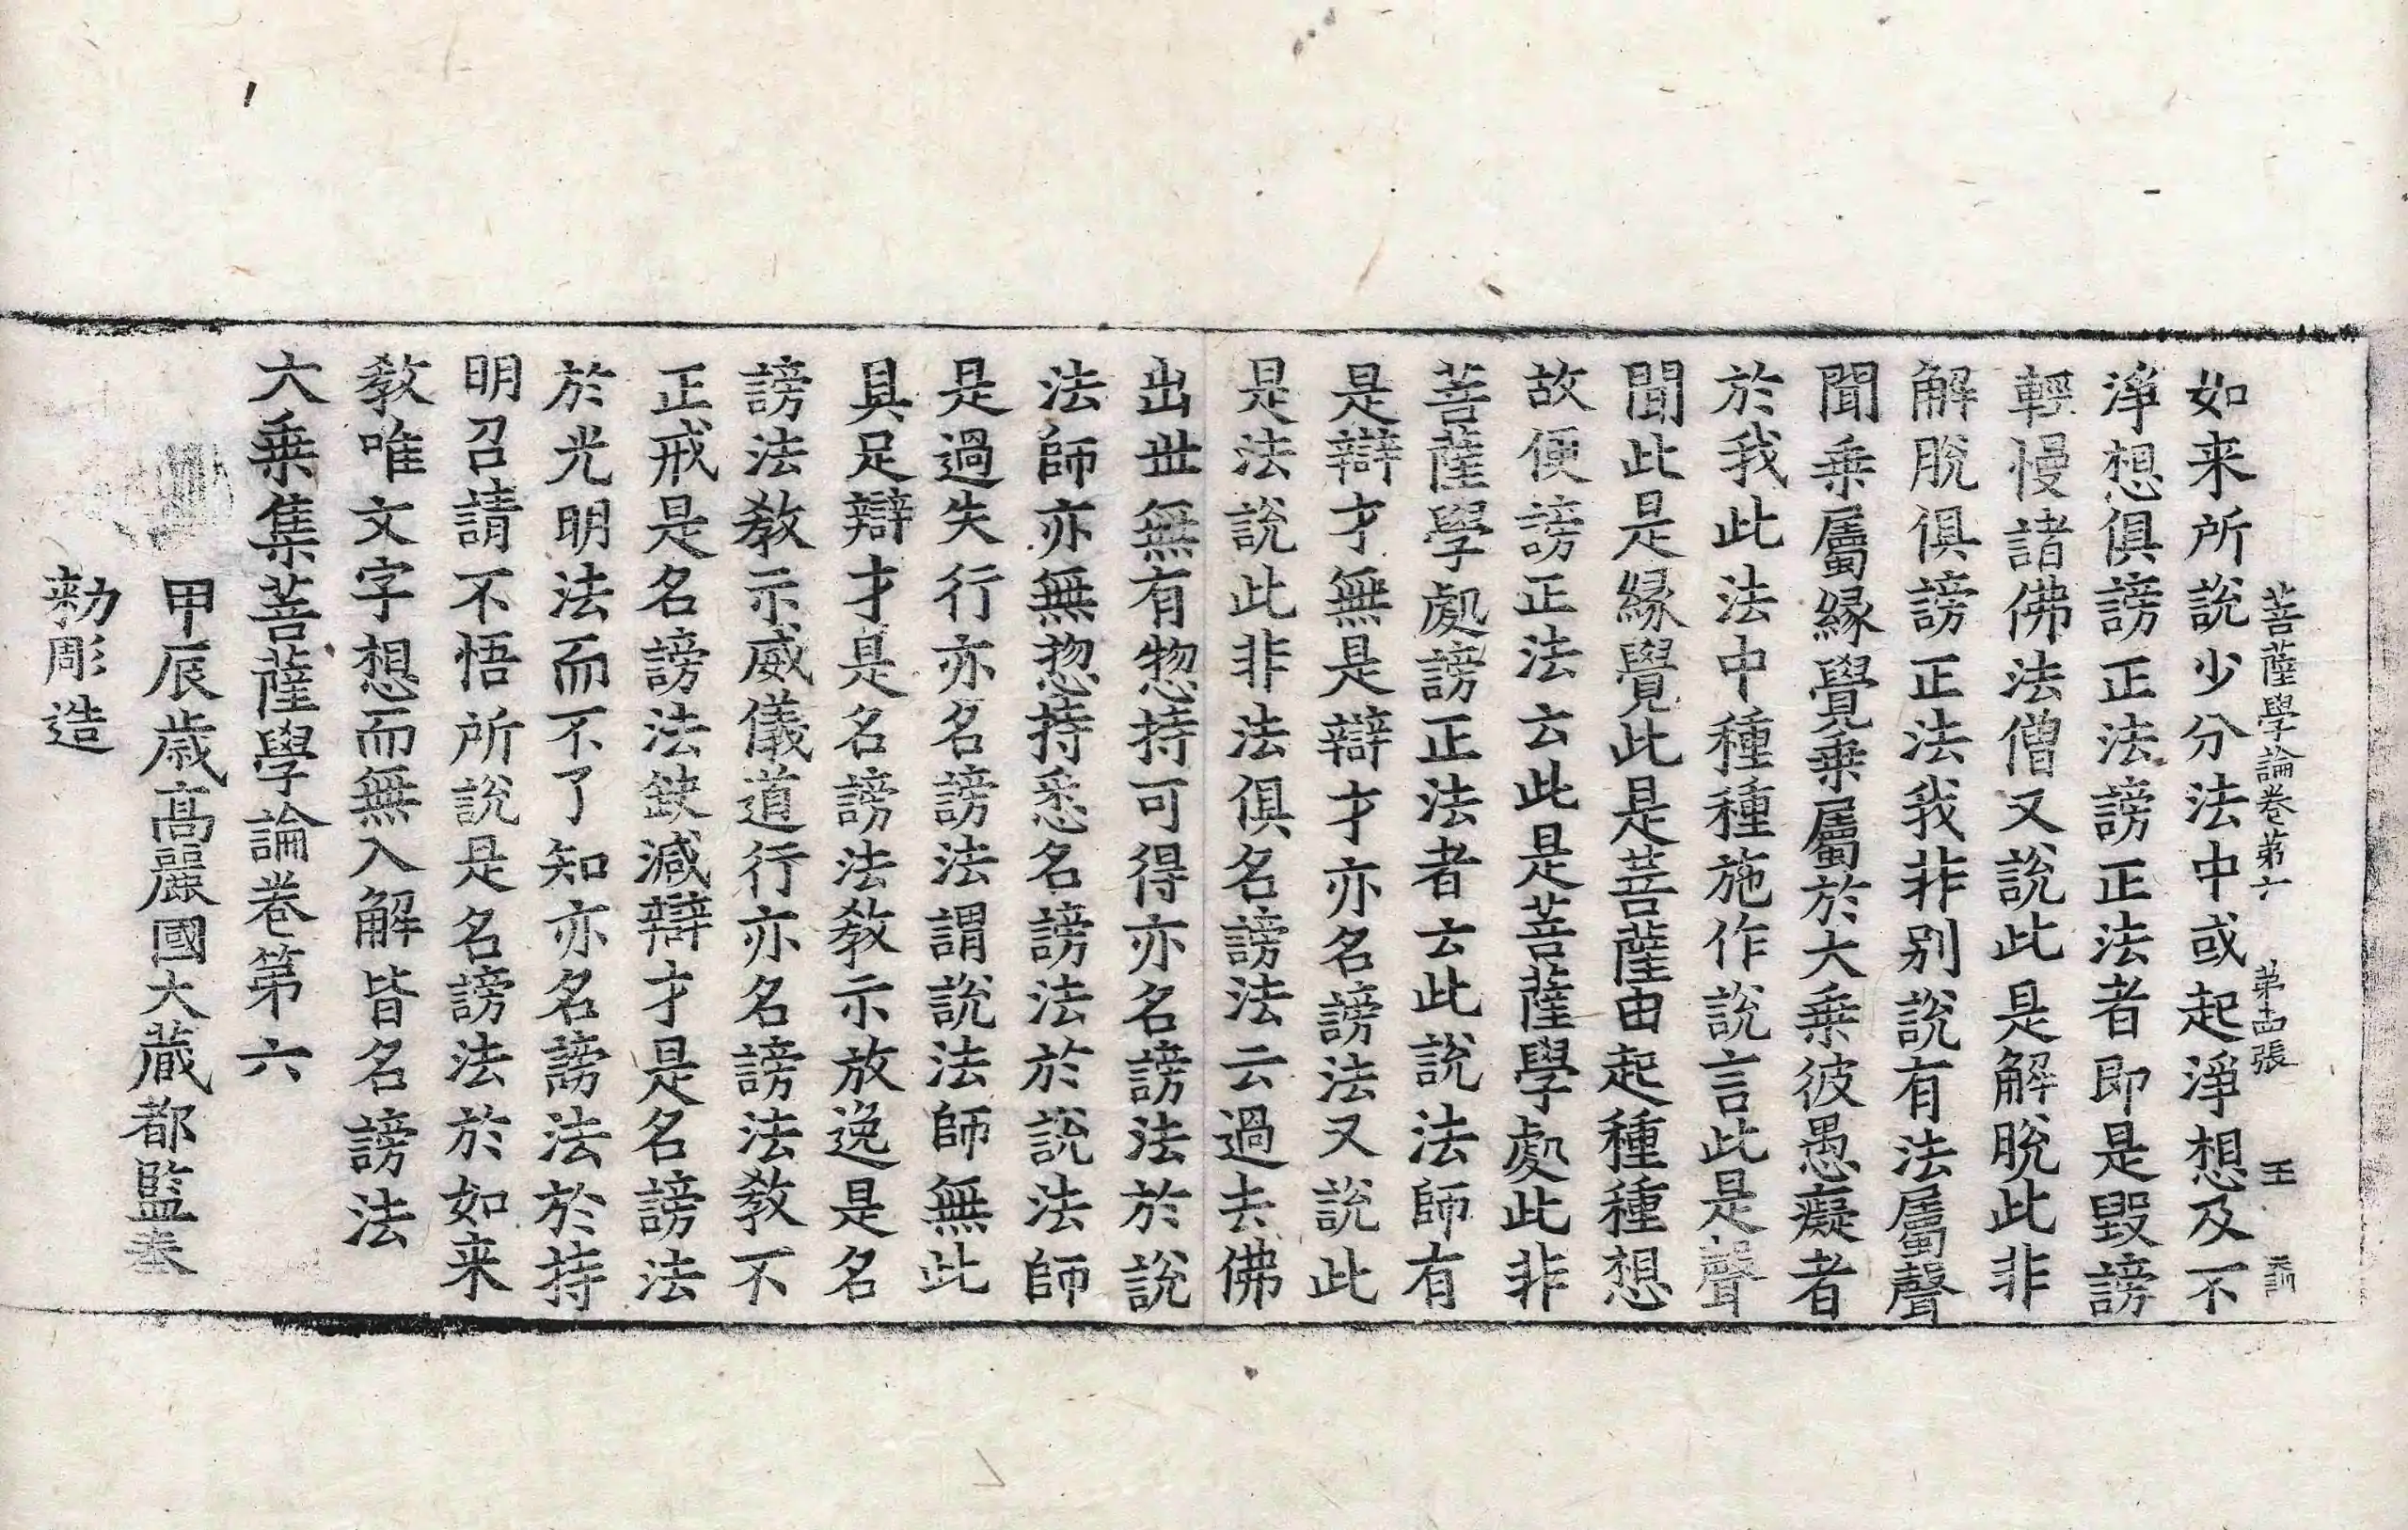 菩薩學論卷第六 第十四張 王
如来所說少分法中或起淨想及不
淨想俱謗正法謗正法者即是毀謗
輕慢諸佛法僧又說此是解脫此非
解脫俱謗正法我非别說有法屬聲
聞乗屬縁覺乗屬於大乗彼愚癡者
於我此法中種種施作說言此是聲
聞此是縁覺此是菩薩由起種種想
故便謗正法云此是菩薩學處此非
菩薩學處謗正法者云此說法師有
是辯才無是辯才亦名謗法又說此
是法說此非法俱名謗法云過去佛
出世無有惣持可得亦名謗法於說
法師亦無惣持悉名謗法於說法師
是過失行亦名謗法謂說法師無此
具足辯才是名謗法教示放逸是名
謗法教示威儀道行亦名謗法教不
正戒是名謗法缺減辯才是名謗法
於光明法而不了知亦名謗法於持
明召請不悟所說是名謗法於如来
教唯文字想而無入解皆名謗法
大乗集菩薩學論卷第六
甲辰歲高麗國大藏都監奉
勑彫造